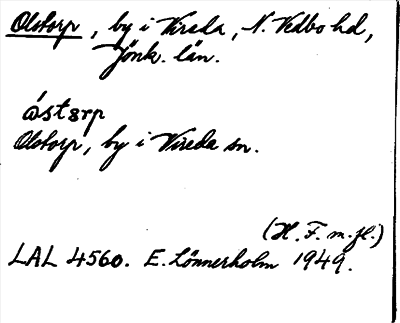 Olstorp, by i Vireda, N. Vedbo hd,
Jönk. län.
óstɜrp
Olstorp, by i Vireda sn.
(H. F. m. fl.)
LAL 4560. E. Lönnerholm 1949.